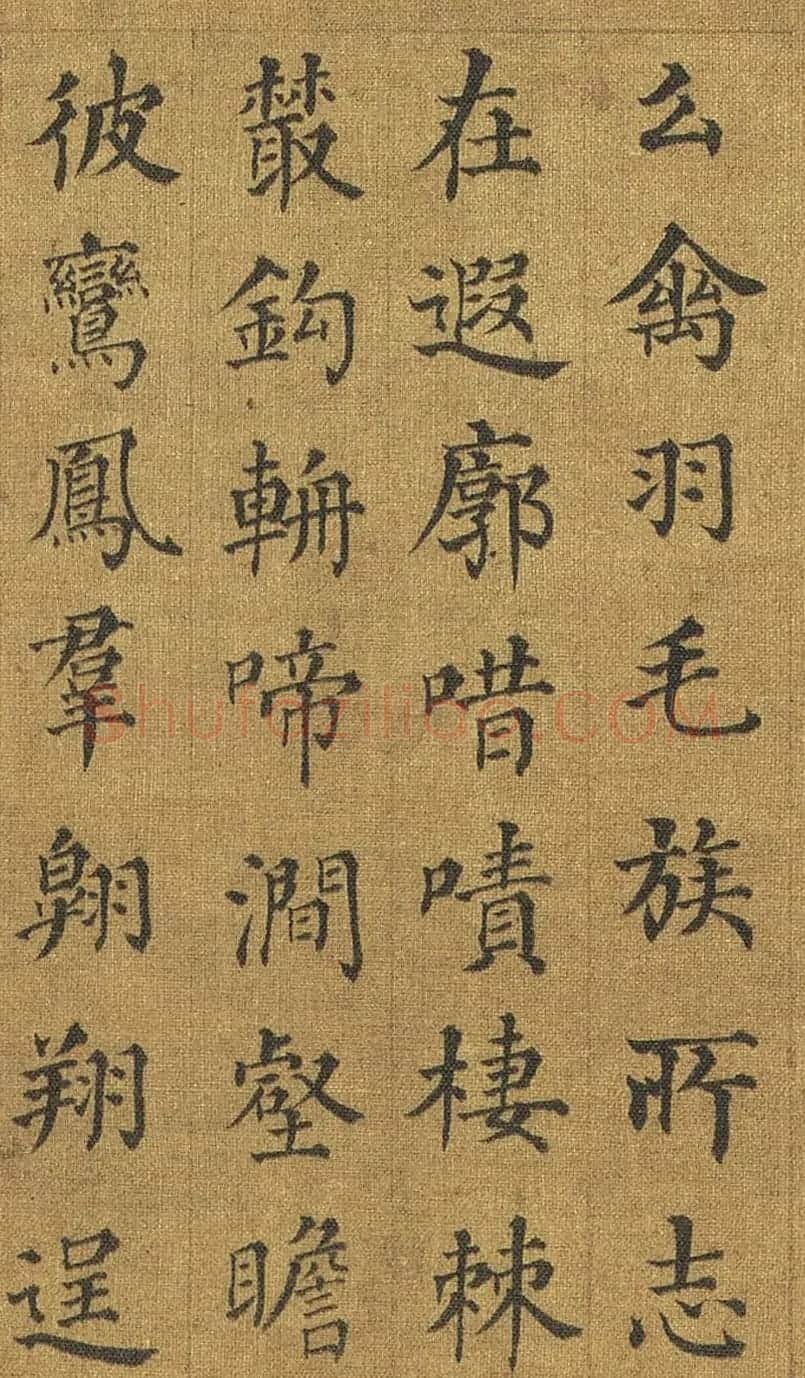 么禽羽毛族所志
在遐廓唶嘖棲棘
藂鈎輈啼澗壑瞻
彼鸞鳳羣翱翔逞